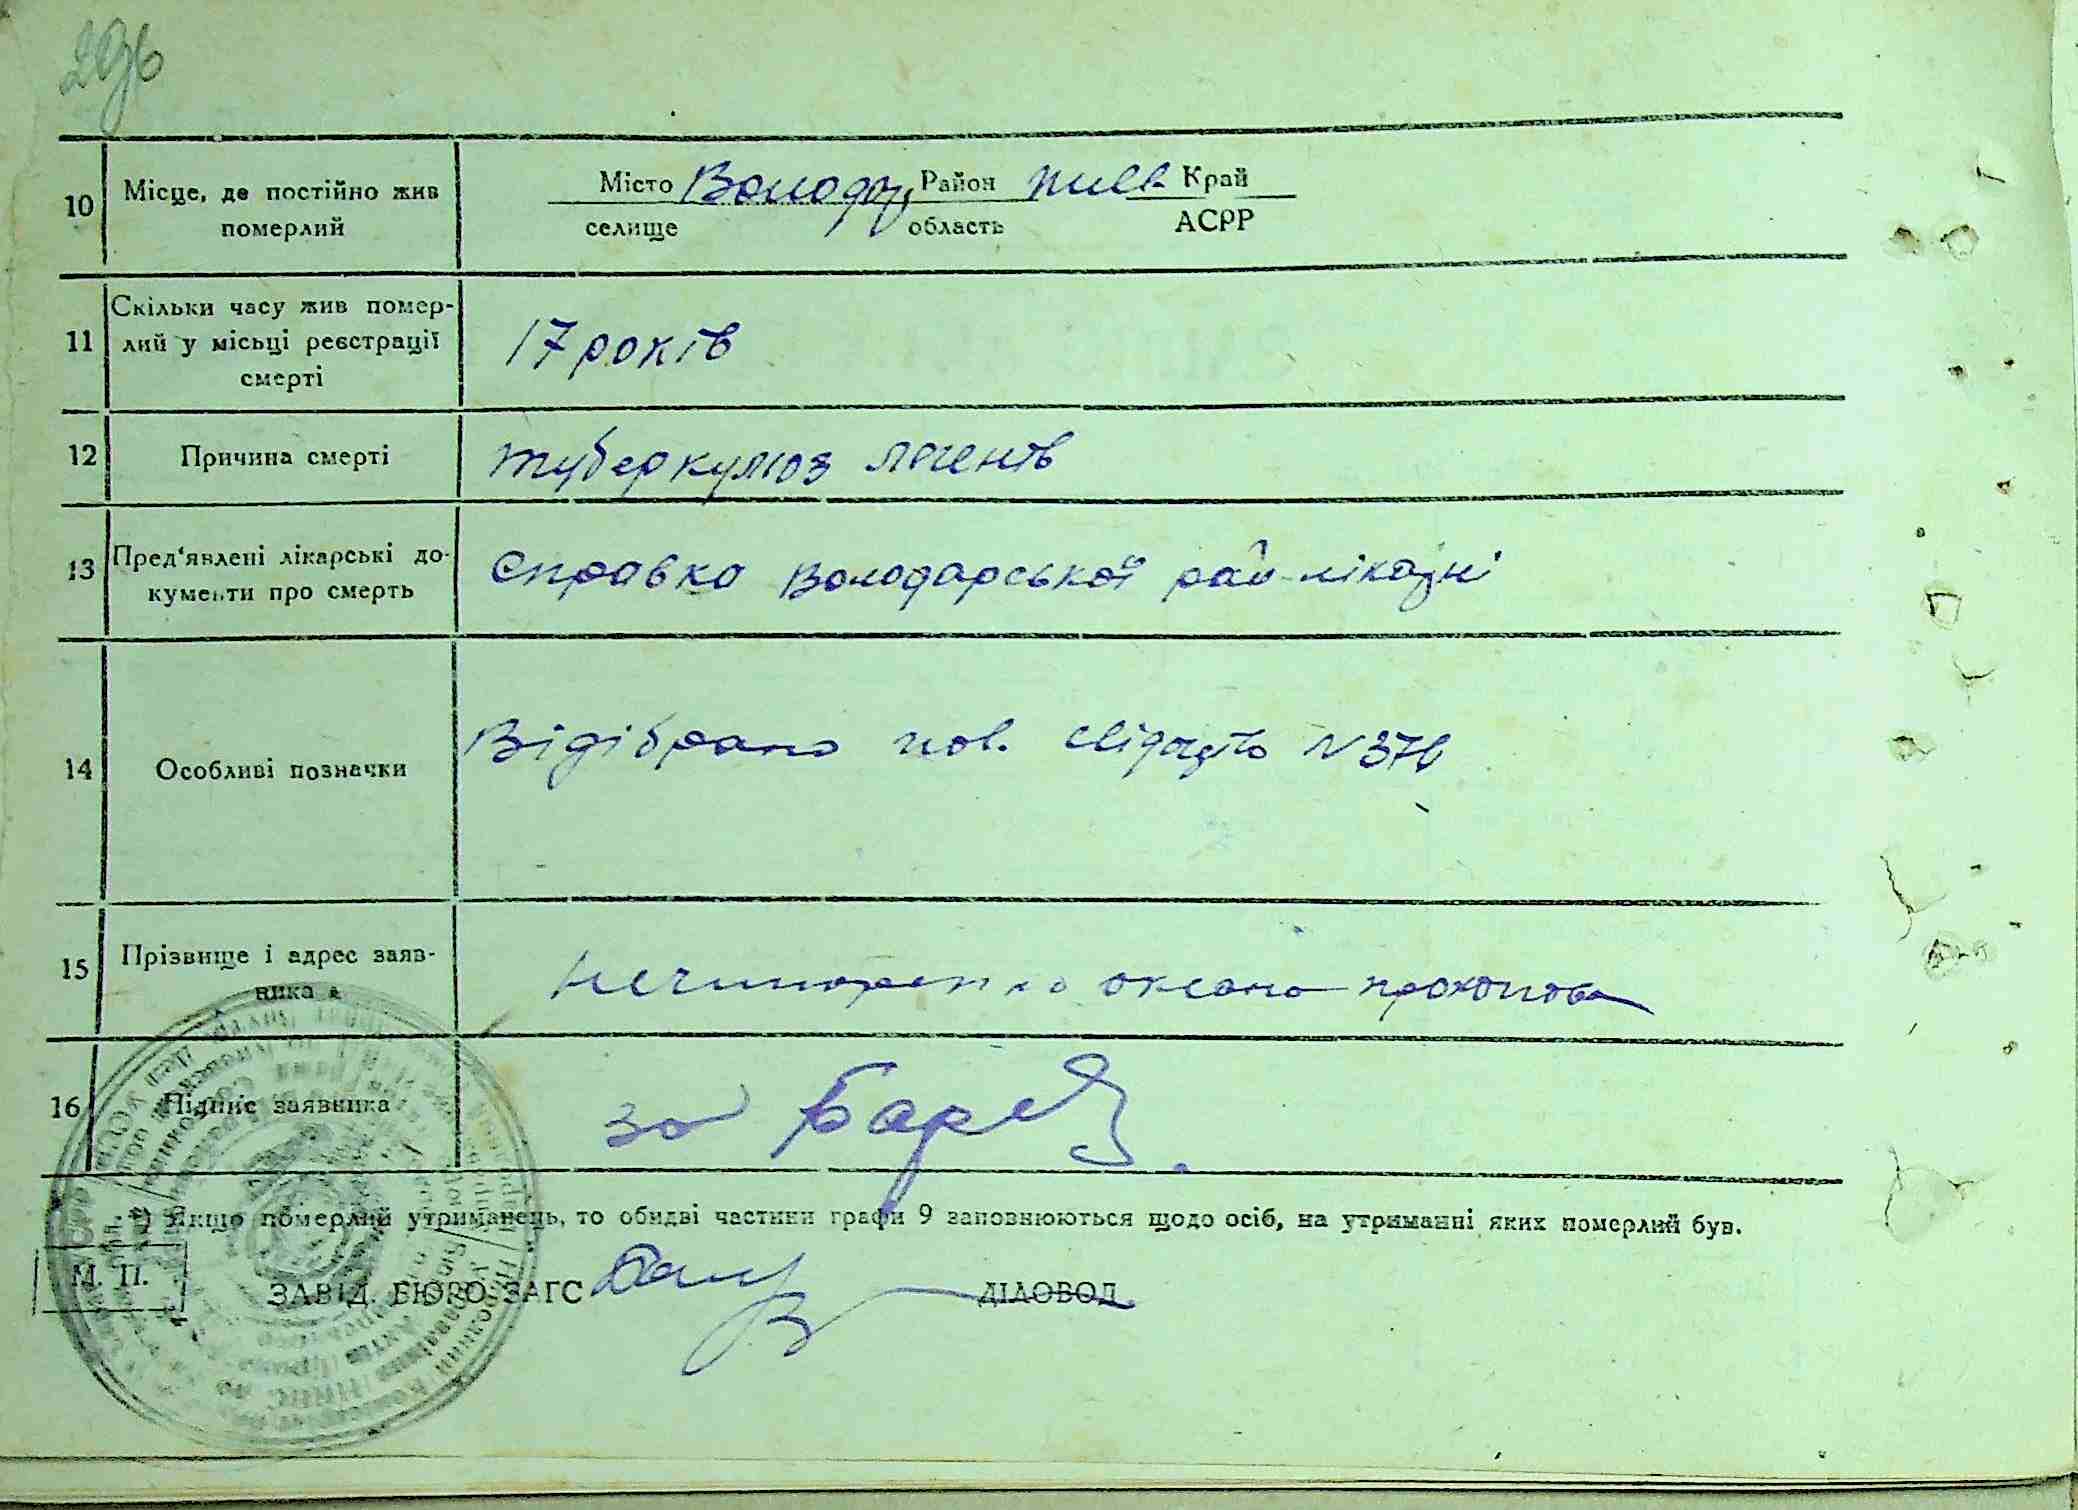 296
10 Місце, де постійно жив Місто Володар, Район Київ. Край
померлий селище область АСРР
11 Скільки часу жив помер-
лий у місьці реєстрації 17 років
смерті
12 Причина смерті туберкульоз легенів
13 Пред'явлені лікарські до- Справка Володарської рай-лікарні
кументи про смерть
14 Особливі позначки Відібрано пов. свідоцтво N 376
15 Прізвище і адрес заяв- оксана прокопов
ника
16 Підпис заявника за
1) Якщо померлий утриманець, то обидві частини графи 9 заповнюються щодо осіб, на утриманні яких померлий був.
М. П.
ЗАВІД. БЮРО ЗАГС ДІЛОВОД